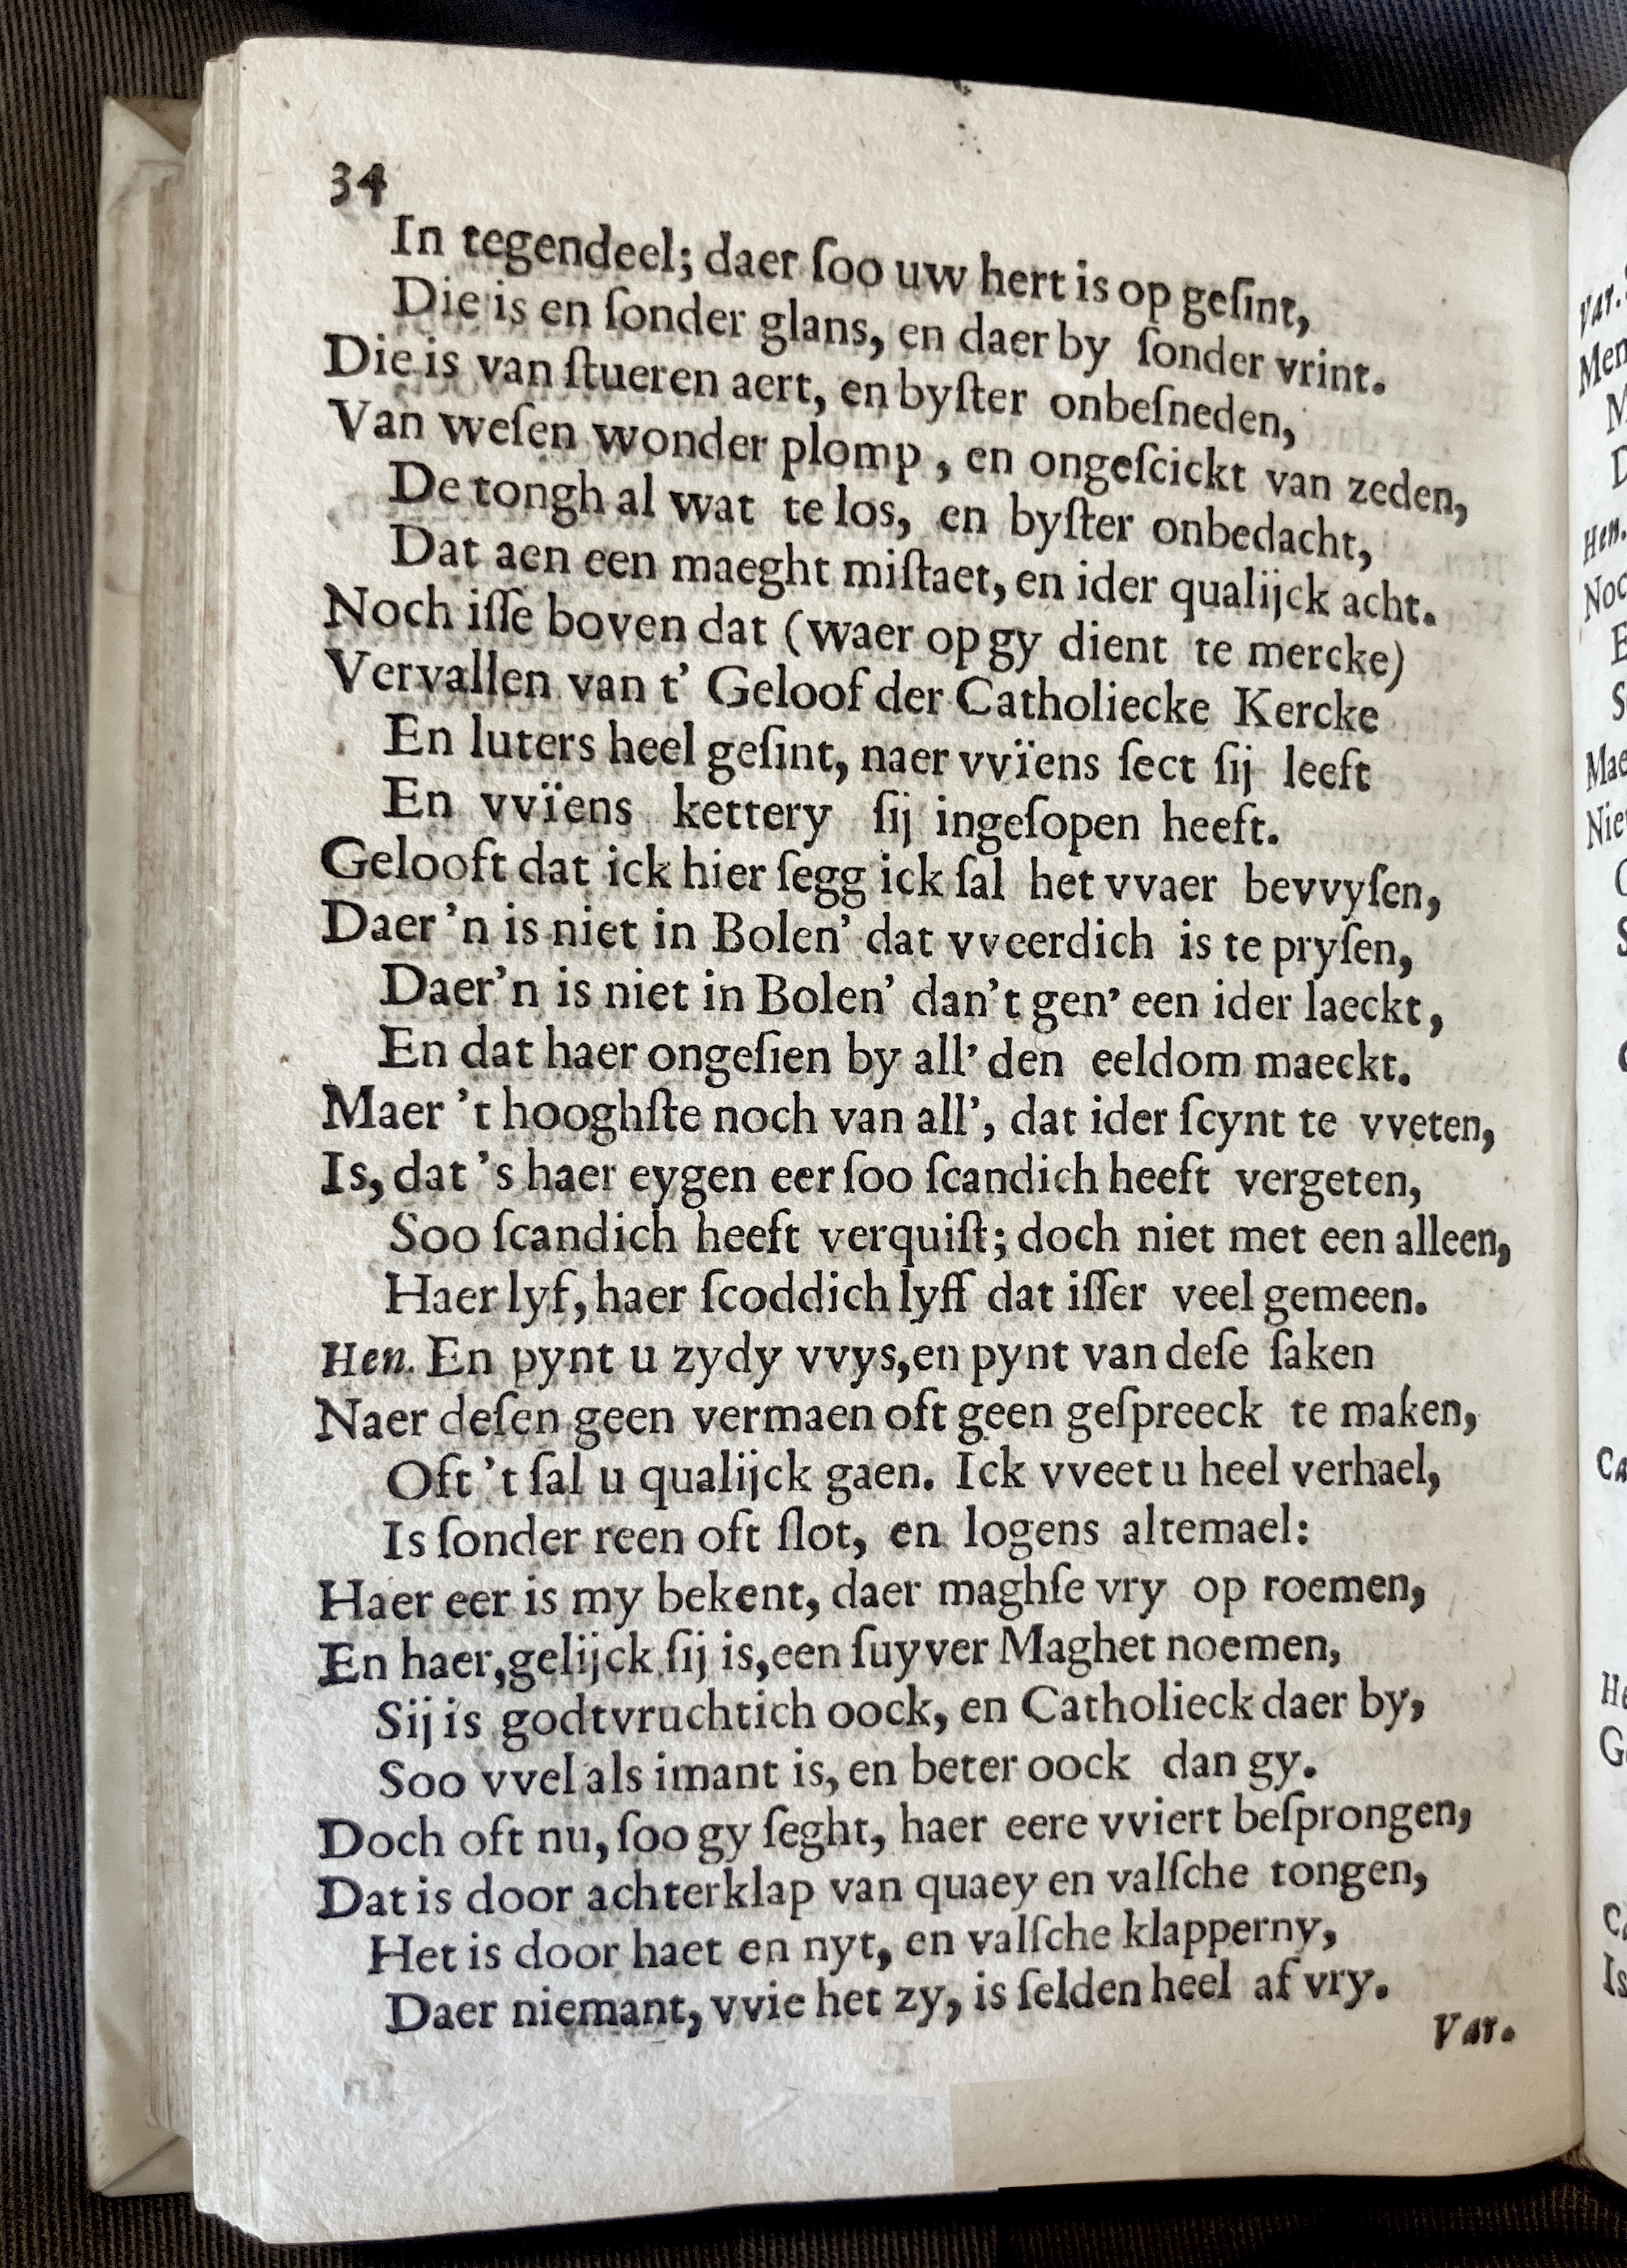 34
In tegendeel; daer ſoo uw hert is op geſint,
Die is en ſonder glans, en daer by ſonder vrint.
Die is van ſtueren aert, en byſter onbeſneden,
Van weſen wonder plomp, en ongeſcickt van zeden,
De tongh al wat te los, en byſter onbedacht,
Dat aen een maeght miſtaet, en ider qualijck acht.
Noch iſſe boven dat (waer op gy dient te mercke)
Vervallen van t' Geloof der Catholiecke Kercke
En luters heel geſint, naer vvïens ſect ſij leeft
En vvïens kettery ſij ingeſopen heeft.
Gelooft dat ick hier ſegg ick ſal het vvaer bevvyſen,
Daer 'n is niet in Bolen' dat vveerdich is te pryſen,
Daer'n is niet in Bolen' dan't gen' een ider laeckt,
En dat haer ongeſien by all' den eeldom maeckt.
Maer 't hooghſte noch van all', dat ider ſcynt te vveten,
Is, dat 's haer eygen eer ſoo ſcandich heeft vergeten,
Soo ſcandich heeft verquiſt; doch niet met een alleen,
Haer lyf, haer ſcoddich lyff dat iſſer veel gemeen.
Hen. En pynt u zydy vvys, en pynt van deſe ſaken
Naer deſen geen vermaen oft geen geſpreeck te maken,
Oft 't ſal u qualijck gaen. Ick vveet u heel verhael,
Is ſonder reen oft ſlot, en logens altemael:
Haer eer is my bekent, daer maghſe vry op roemen,
En haer, gelijck ſij is, een ſuyver Maghet noemen,
Sij is godtvruchtich oock, en Catholieck daer by,
Soo vvel als imant is, en beter oock dan gy.
Doch oft nu, ſoo gy ſeght, haer eere vviert beſprongen,
Dat is door achterklap van quaey en valſche tongen,
Het is door haet en nyt, en valſche klapperny,
Daer niemant, vvie het zy, is ſelden heel af vry.
Var.